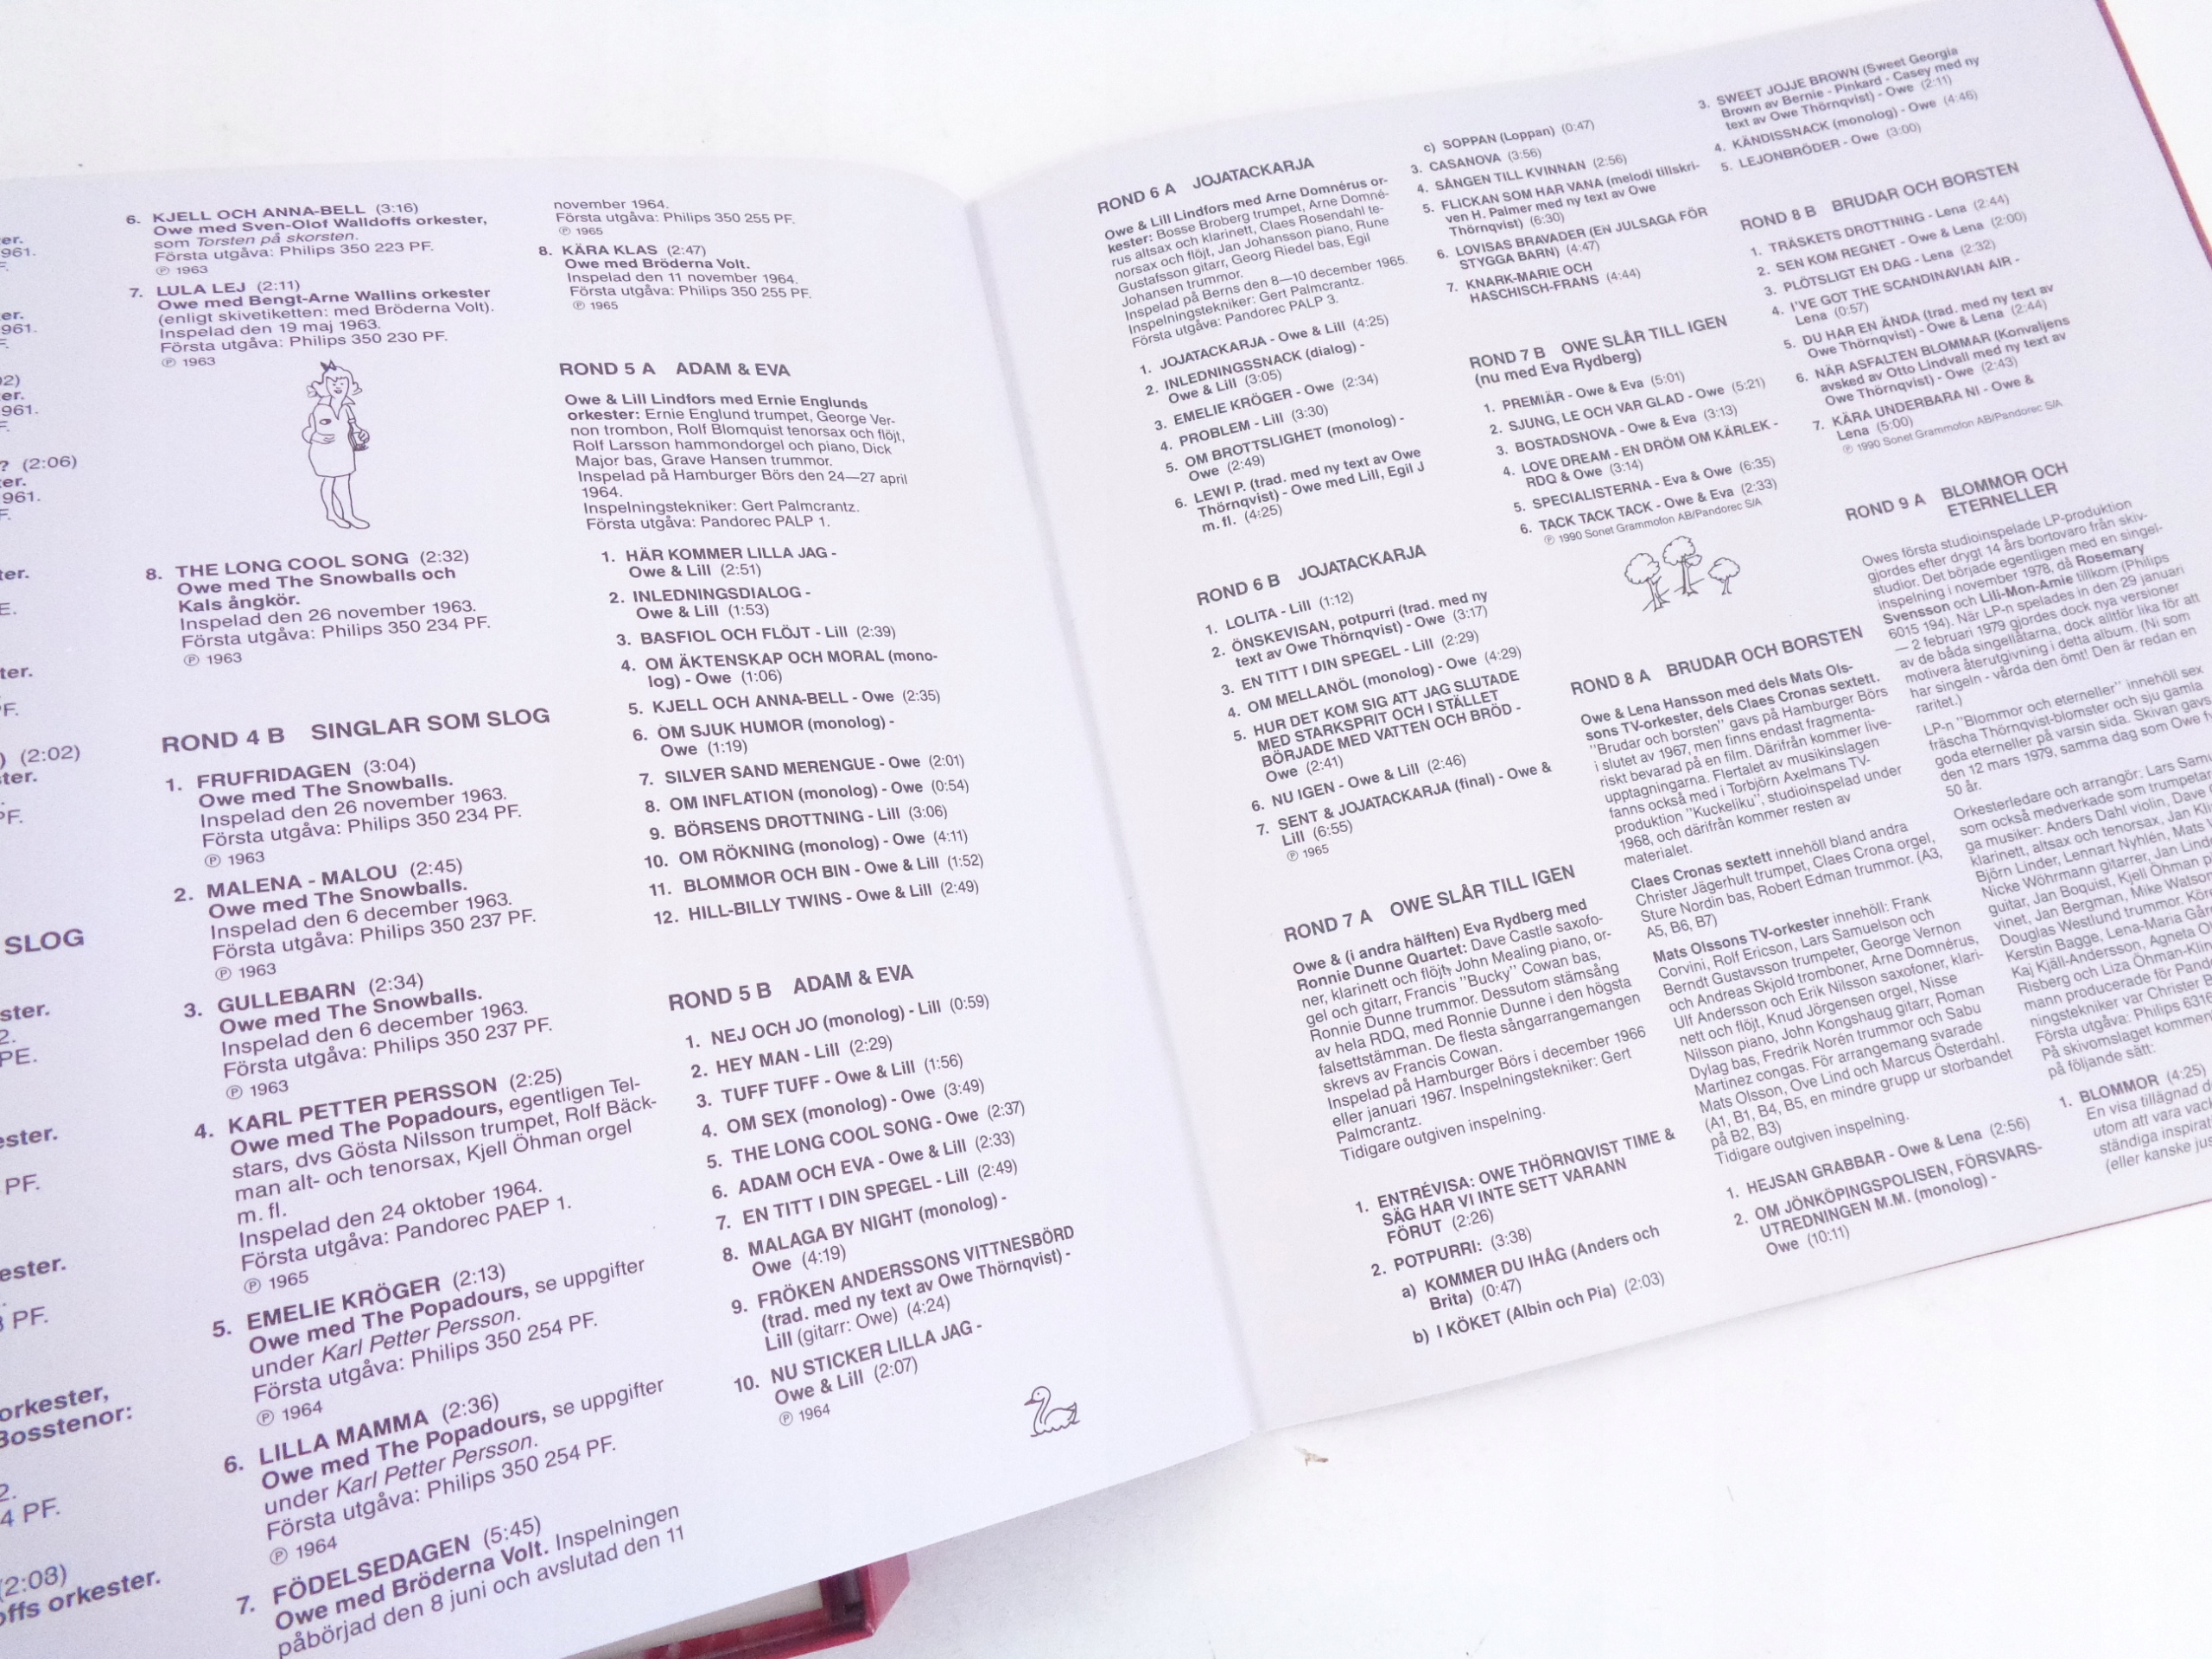 er.
961.
F.
er.
961.
F.
02)
er.
961.
F.
? (2:06)
ter.
961.
F.
ter.
E.
ter.
F.
) (2:02)
ter.
PF.
SLOG
ster.
2.
PE.
ester.
PF.
ester.
PF.
orkester,
Bosstenor:
2.
4 PF.
(2:08)
offs orkester.
6. KJELL OCH ANNA-BELL (3:16)
Owe med Sven-Olof Walldoffs orkester,
som Torsten på skorsten.
Första utgåva: Philips 350 223 PF.
℗ 1963
7. LULA LEJ (2:11)
Owe med Bengt-Arne Wallins orkester
(enligt skivetiketten: med Bröderna Volt).
Inspelad den 19 maj 1963.
Första utgåva: Philips 350 230 PF.
℗ 1963
8. THE LONG COOL SONG (2:32)
Owe med The Snowballs och
Kals ångkör.
Inspelad den 26 november 1963.
Första utgåva: Philips 350 234 PF.
℗ 1963
ROND 4 B SINGLAR SOM SLOG
1. FRUFRIDAGEN (3:04)
Owe med The Snowballs.
Inspelad den 26 november 1963.
Första utgåva: Philips 350 234 PF.
℗ 1963
2. MALENA - MALOU (2:45)
Owe med The Snowballs.
Inspelad den 6 december 1963.
Första utgåva: Philips 350 237 PF.
℗ 1963
3. GULLEBARN (2:34)
Owe med The Snowballs.
Inspelad den 6 december 1963.
Första utgåva: Philips 350 237 PF.
℗ 1963
4. KARL PETTER PERSSON (2:25)
Owe med The Popadours, egentligen Tel-
stars, dvs Gösta Nilsson trumpet, Rolf Bäck-
man alt- och tenorsax, Kjell Öhman orgel
m. fl.
Inspelad den 24 oktober 1964.
Första utgåva: Pandorec PAEP 1.
℗ 1965
5. EMELIE KRÖGER (2:13)
Owe med The Popadours, se uppgifter
under Karl Petter Persson.
Första utgåva: Philips 350 254 PF.
℗ 1964
6. LILLA MAMMA (2:36)
Owe med The Popadours, se uppgifter
under Karl Petter Persson.
Första utgåva: Philips 350 254 PF.
℗ 1964
7. FÖDELSEDAGEN (5:45)
Owe med Bröderna Volt. Inspelningen
påbörjad den 8 juni och avslutad den 11
november 1964.
Första utgåva: Philips 350 255 PF.
℗ 1965
8. KÄRA KLAS (2:47)
Owe med Bröderna Volt.
Inspelad den 11 november 1964.
Första utgåva: Philips 350 255 PF.
℗ 1965
ROND 5 A ADAM & EVA
Owe & Lill Lindfors med Ernie Englunds
orkester: Ernie Englund trumpet, George Ver-
non trombon, Rolf Blomquist tenorsax och flöjt,
Rolf Larsson hammondorgel och piano, Dick
Major bas, Grave Hansen trummor.
Inspelad på Hamburger Börs den 24—27 april
1964.
Inspelningstekniker: Gert Palmcrantz.
Första utgåva: Pandorec PALP 1.
1. HÄR KOMMER LILLA JAG -
Owe & Lill (2:51)
2. INLEDNINGSDIALOG -
Owe & Lill (1:53)
3. BASFIOL OCH FLÖJT - Lill (2:39)
4. OM ÄKTENSKAP OCH MORAL (mono-
log) - Owe (1:06)
5. KJELL OCH ANNA-BELL - Owe (2:35)
6. OM SJUK HUMOR (monolog) -
Owe (1:19)
7. SILVER SAND MERENGUE - Owe (2:01)
8. OM INFLATION (monolog) - Owe (0:54)
9. BÖRSENS DROTTNING - Lill (3:06)
10. OM RÖKNING (monolog) - Owe (4:11)
11. BLOMMOR OCH BIN - Owe & Lill (1:52)
12. HILL-BILLY TWINS - Owe & Lill (2:49)
ROND 5 B ADAM & EVA
1. NEJ OCH JO (monolog) - Lill (0:59)
2. HEY MAN - Lill (2:29)
3. TUFF TUFF - Owe & Lill (1:56)
4. OM SEX (monolog) - Owe (3:49)
5. THE LONG COOL SONG - Owe (2:37)
6. ADAM OCH EVA - Owe & Lill (2:33)
7. EN TITT I DIN SPEGEL - Lill (2:49)
8. MALAGA BY NIGHT (monolog) -
Owe (4:19)
9. FRÖKEN ANDERSSONS VITTNESBÖRD
(trad. med ny text av Owe Thörnqvist) -
Lill (gitarr: Owe) (4:24)
10. NU STICKER LILLA JAG -
Owe & Lill (2:07)
℗ 1964
ROND 6 A JOJATACKARJA
Owe & Lill Lindfors med Arne Domnérus or-
kester: Bosse Broberg trumpet, Arne Domné-
rus altsax och klarinett, Claes Rosendahl te-
norsax och flöjt, Jan Johansson piano, Rune
Gustafsson gitarr, Georg Riedel bas, Egil
Johansen trummor.
Inspelad på Berns den 8—10 december 1965.
Inspelningstekniker: Gert Palmcrantz.
Första utgåva: Pandorec PALP 3.
1. JOJATACKARJA - Owe & Lill (4:25)
2. INLEDNINGSSNACK (dialog) -
Owe & Lill (3:05)
3. EMELIE KRÖGER - Owe (2:34)
4. PROBLEM - Lill (3:30)
5. OM BROTTSLIGHET (monolog) -
Owe (2:49)
6. LEWI P. (trad. med ny text av Owe
Thörnqvist) - Owe med Lill, Egil J
m. fl. (4:25)
ROND 6 B JOJATACKARJA
1. LOLITA - Lill (1:12)
2. ÖNSKEVISAN, potpurri (trad. med ny
text av Owe Thörnqvist) - Owe (3:17)
3. EN TITT I DIN SPEGEL - Lill (2:29)
4. OM MELLANÖL (monolog) - Owe (4:29)
5. HUR DET KOM SIG ATT JAG SLUTADE
MED STARKSPRIT OCH I STÄLLET
BÖRJADE MED VATTEN OCH BRÖD -
Owe (2:41)
6. NU IGEN - Owe & Lill (2:46)
7. SENT & JOJATACKARJA (final) - Owe &
Lill (6:55)
℗ 1965
ROND 7 A OWE SLÅR TILL IGEN
Owe & (i andra hälften) Eva Rydberg med
Ronnie Dunne Quartet: Dave Castle saxofo-
ner, klarinett och flöjt, John Mealing piano, or-
gel och gitarr, Francis "Bucky" Cowan bas,
Ronnie Dunne trummor. Dessutom stämsång
av hela RDQ, med Ronnie Dunne i den högsta
falsettstämman. De flesta sångarrangemangen
skrevs av Francis Cowan.
Inspelad på Hamburger Börs i december 1966
eller januari 1967. Inspelningstekniker: Gert
Palmcrantz.
Tidigare outgiven inspelning.
1. ENTRÉVISA: OWE THÖRNQVIST TIME &
SÄG HAR VI INTE SETT VARANN
FÖRUT (2:26)
2. POTPURRI: (3:38)
a) KOMMER DU IHÅG (Anders och
Brita) (0:47)
b) I KÖKET (Albin och Pia) (2:03)
c) SOPPAN (Loppan) (0:47)
3. CASANOVA (3:56)
4. SÅNGEN TILL KVINNAN (2:56)
5. FLICKAN SOM HAR VANA (melodi tillskri-
ven H. Palmer med ny text av Owe
Thörnqvist) (6:30)
6. LOVISAS BRAVADER (EN JULSAGA FÖR
STYGGA BARN) (4:47)
7. KNARK-MARIE OCH
HASCHISCH-FRANS (4:44)
ROND 7 B OWE SLÅR TILL IGEN
(nu med Eva Rydberg)
1. PREMIÄR - Owe & Eva (5:01)
2. SJUNG, LE OCH VAR GLAD - Owe (5:21)
3. BOSTADSNOVA - Owe & Eva (3:13)
4. LOVE DREAM - EN DRÖM OM KÄRLEK -
RDQ & Owe (3:14)
5. SPECIALISTERNA - Eva & Owe (6:35)
6. TACK TACK TACK - Owe & Eva (2:33)
℗ 1990 Sonet Grammofon AB/Pandorec S/A
ROND 8 A BRUDAR OCH BORSTEN
Owe & Lena Hansson med dels Mats Ols-
sons TV-orkester, dels Claes Cronas sextett.
"Brudar och borsten" gavs på Hamburger Börs
i slutet av 1967, men finns endast fragmenta-
riskt bevarad på en film. Därifrån kommer live-
upptagningarna. Flertalet av musikinslagen
fanns också med i Torbjörn Axelmans TV-
produktion "Kuckeliku", studioinspelad under
1968, och därifrån kommer resten av
materialet.
Claes Cronas sextett innehöll bland andra
Christer Jägerhult trumpet, Claes Crona orgel,
Sture Nordin bas, Robert Edman trummor. (A3,
A5, B6, B7)
Mats Olssons TV-orkester innehöll: Frank
Corvini, Rolf Ericson, Lars Samuelson och
Berndt Gustavsson trumpeter, George Vernon
och Andreas Skjold tromboner, Arne Domnérus,
Ulf Andersson och Erik Nilsson saxofoner, klari-
nett och flöjt, Knud Jörgensen orgel, Nisse
Nilsson piano, John Kongshaug gitarr, Roman
Dylag bas, Fredrik Norén trummor och Sabu
Martinez congas. För arrangemang svarade
Mats Olsson, Ove Lind och Marcus Österdahl.
(A1, B1, B4, B5, en mindre grupp ur storbandet
på B2, B3)
Tidigare outgiven inspelning.
1. HEJSAN GRABBAR - Owe & Lena (2:56)
2. OM JÖNKÖPINGSPOLISEN, FÖRSVARS-
UTREDNINGEN M.M. (monolog) -
Owe (10:11)
3. SWEET JOJJE BROWN (Sweet Georgia
Brown av Bernie - Pinkard - Casey med ny
text av Owe Thörnqvist) - Owe (2:11)
4. KÄNDISSNACK (monolog) - Owe (4:46)
5. LEJONBRÖDER - Owe (3:00)
ROND 8 B BRUDAR OCH BORSTEN
1. TRÄSKETS DROTTNING - Lena (2:44)
2. SEN KOM REGNET - Owe & Lena (2:00)
3. PLÖTSLIGT EN DAG - Lena (2:32)
4. I'VE GOT THE SCANDINAVIAN AIR -
Lena (0:57)
5. DU HAR EN ÄNDA (trad. med ny text av
Owe Thörnqvist) - Owe & Lena (2:44)
6. NÄR ASFALTEN BLOMMAR (Konvaljens
avsked av Otto Lindvall med ny text av
Owe Thörnqvist) - Owe (2:43)
7. KÄRA UNDERBARA NI - Owe &
Lena (5:00)
℗ 1990 Sonet Grammofon AB/Pandorec S/A
ROND 9 A BLOMMOR OCH
ETERNELLER
Owes första studioinspelade LP-produktion
gjordes efter drygt 14 års bortovaro från skiv-
studior. Det började egentligen med en singel-
inspelning i november 1978, då Rosemary
Svensson och Lili-Mon-Amie tillkom (Philips
6015 194). När LP-n spelades in den 29 januari
— 2 februari 1979 gjordes dock nya versioner
av de båda singellåtarna, dock alltför lika för att
motivera återutgivning i detta album. (Ni som
har singeln - vårda den ömt! Den är redan en
raritet.)
LP-n "Blommor och eterneller" innehöll sex
fräscha Thörnqvist-blomster och sju gamla
goda eterneller på varsin sida. Skivan gavs
den 12 mars 1979, samma dag som Owe
50 år.
Orkesterledare och arrangör: Lars Samu
som också medverkade som trumpetare
ga musiker: Anders Dahl violin, Dave
klarinett, altsax och tenorsax, Jan
Björn Linder, Lennart Nyhlén, Mats
Nicke Wöhrmann gitarrer, Jan
guitar, Jan Boquist, Kjell Öhman
vinet, Jan Bergman, Mike Watson
Douglas Westlund trummor. Kör:
Kerstin Bagge, Lena-Maria
Kaj Kjäll-Andersson, Agneta
Risberg och Liza Öhman
mann producerade för
ningstekniker var Christer
Första utgåva: Philips
På skivomslaget
på följande sätt:
1. BLOMMOR (4:25)
En visa tillägnad
utom att vara
ständiga
(eller kanske